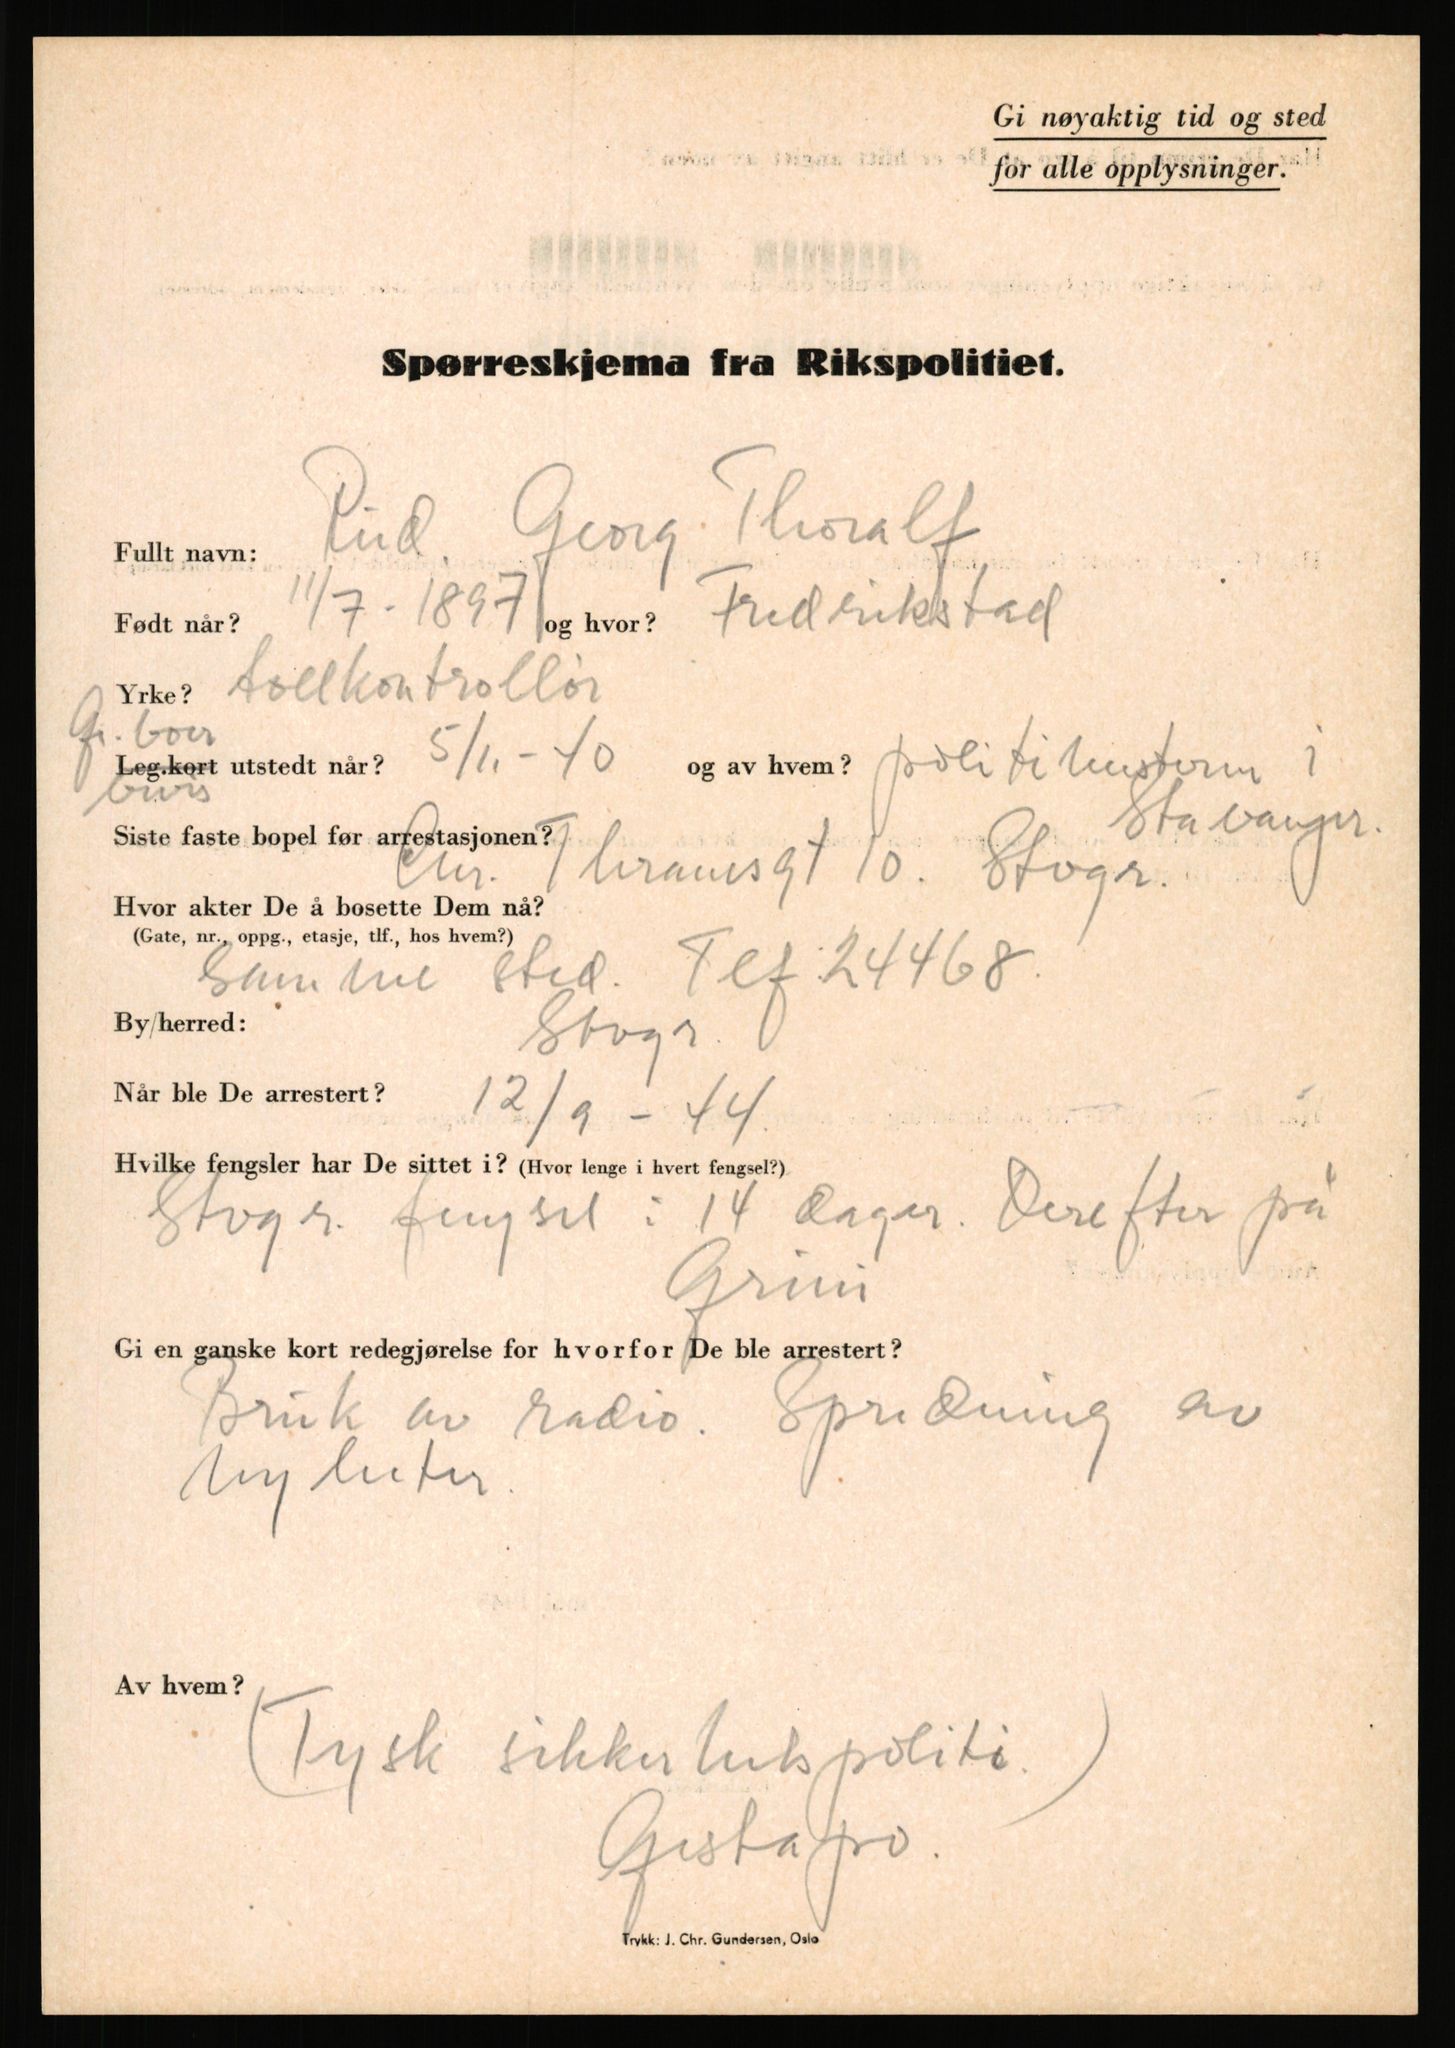 Gi nøyaktig tid og sted
for alle opplysninger.
Spørreskjema fra Rikspolitiet.
Fullt navn: Rud. Georg Thoralf
Født når? 11/7-1897 og hvor? Fredrikstad
Yrke? tollkontrollør
Gr. boer
Leg.kort utstedt når? 5/11-40 og av hvem? politimesteren i
bevis
Stavanger.
Siste faste bopel før arrestasjonen?
Chr. Thranesgt 10. Stvgr.
Hvor akter De å bosette Dem nå?
(Gate, nr., oppg., etasje, tlf., hos hvem?)
Samme sted. Tlf 24468.
By/herred: Stvgr.
Når ble De arrestert? 12/9-44
Hvilke fengsler har De sittet i? (Hvor lenge i hvert fengsel?)
Stvgr. fengsel i 14 dager. Derefter på
Grini
Gi en ganske kort redegjørelse for hvorfor De ble arrestert?
Bruk av radio. Spredning av
nyheter.
Av hvem?
(Tysk sikkerhetspoliti.)
Gestapo.
Trykk: J. Chr. Gundersen, Oslo